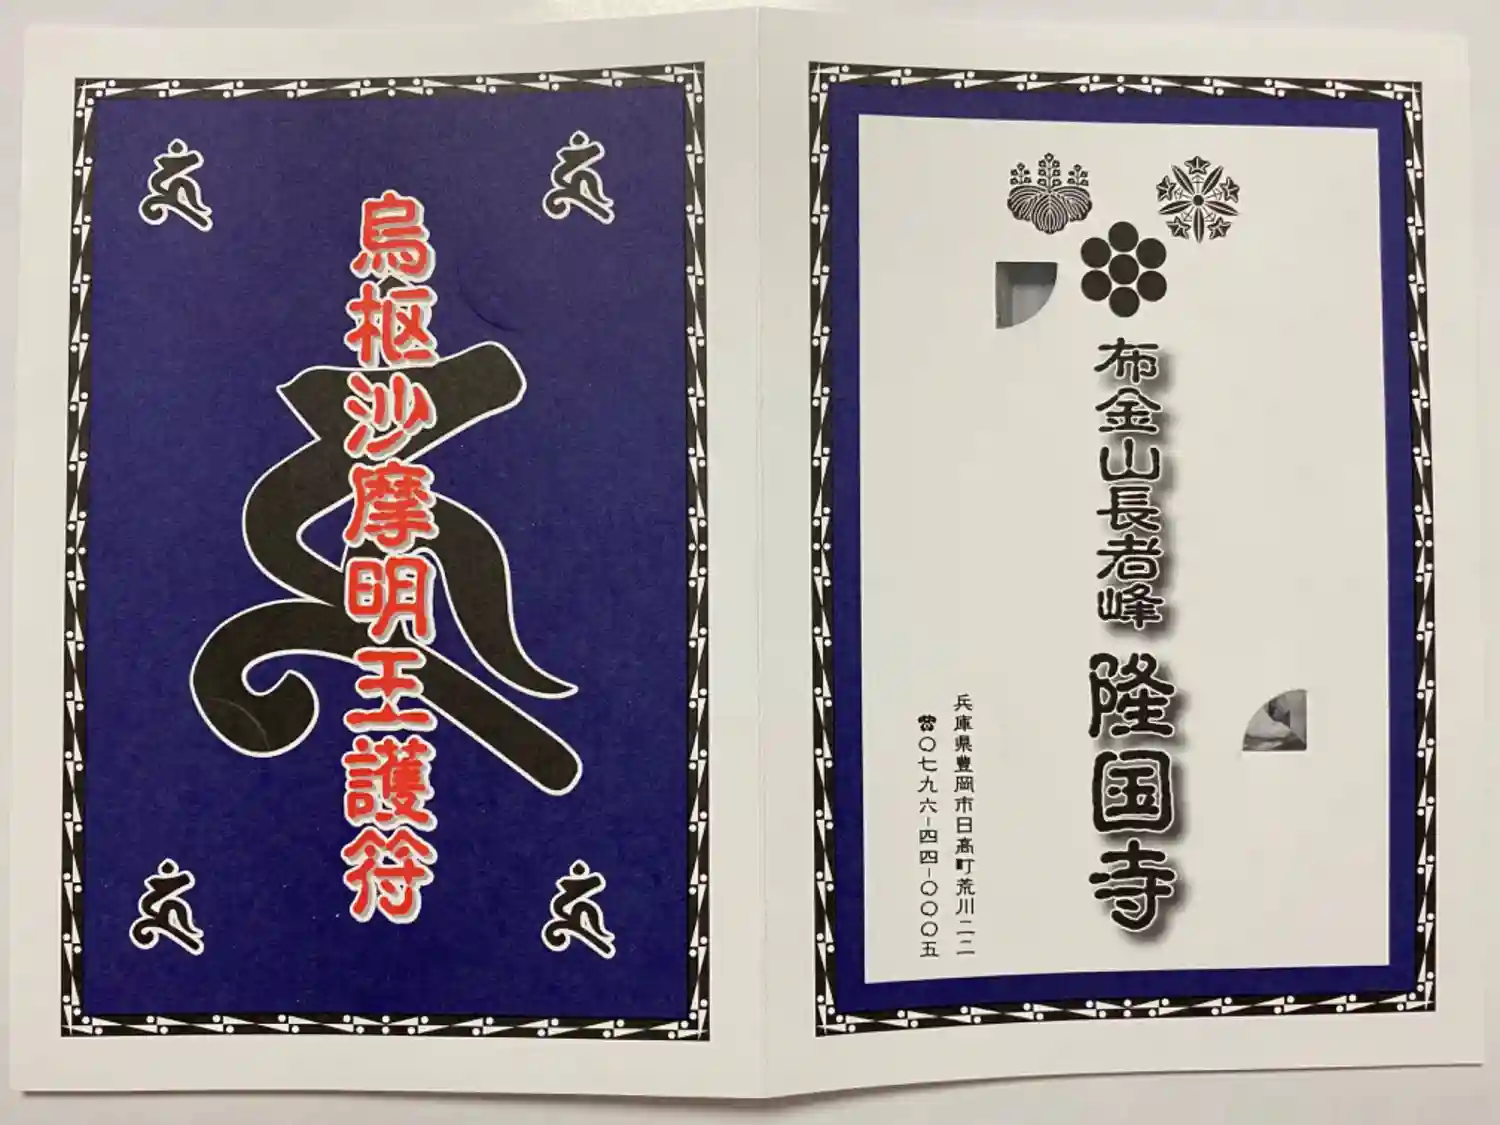 烏枢沙摩明王護符
布金山長者峰 隆国寺
兵庫県豊岡市日高町荒川二二
☎〇七九六-四四-〇〇〇五